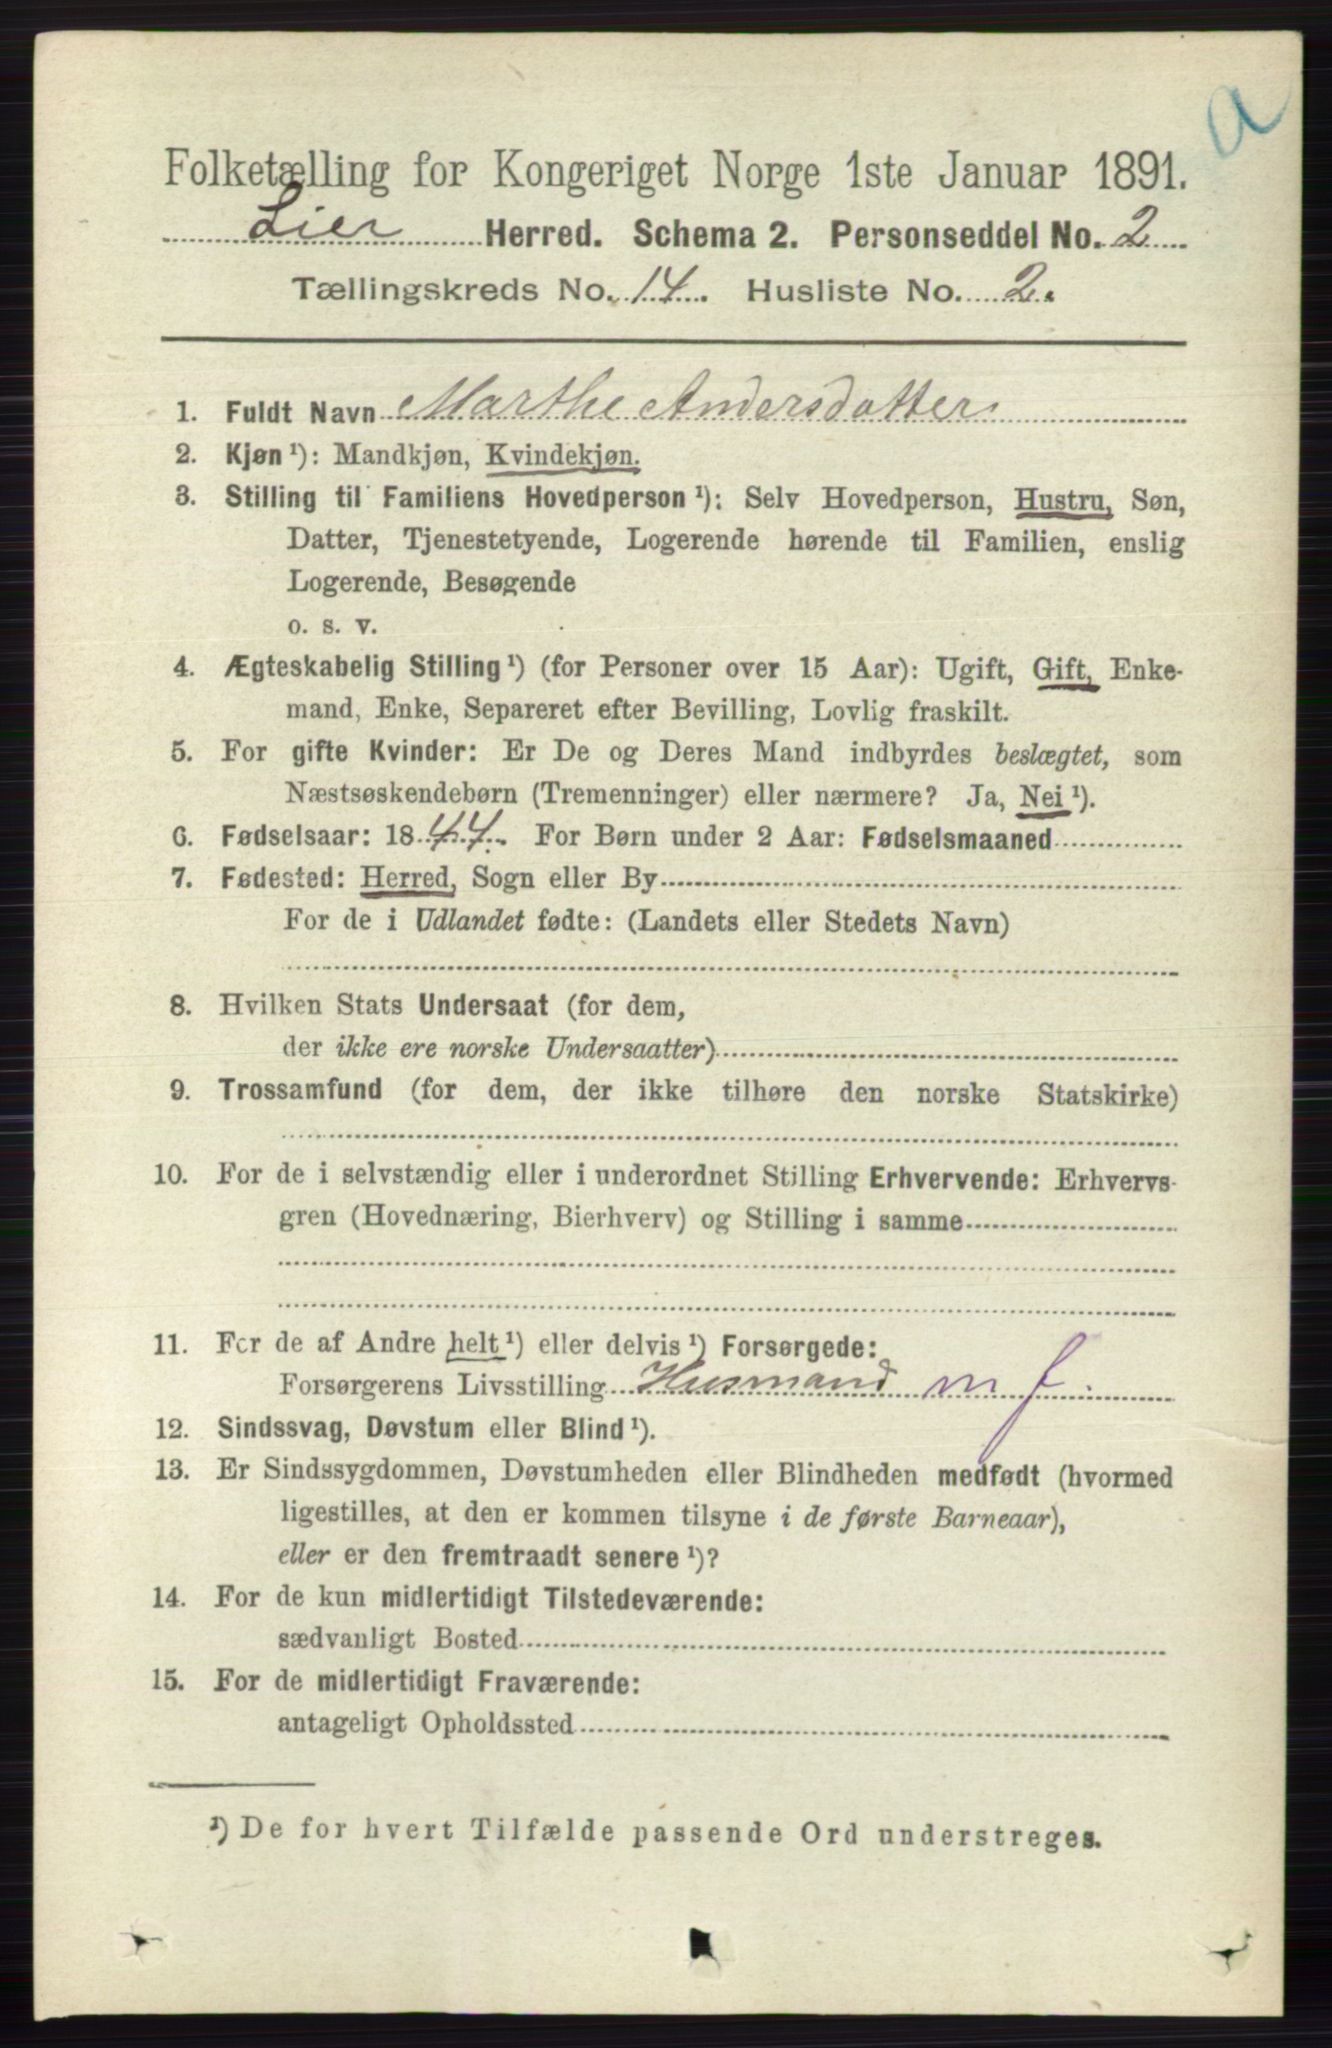 a
Folketælling for Kongeriget Norge 1ste Januar 1891.
Lier Herred. Schema 2. Personseddel No. 2
Tællingskreds No. 14. Husliste No. 2.
1. Fuldt Navn Marthe Andersdatter
2. Kjøn ¹): Mandkjøn, Kvindekjøn.
3. Stilling til Familiens Hovedperson ¹): Selv Hovedperson, Hustru, Søn,
Datter, Tjenestetyende, Logerende hørende til Familien, enslig
Logerende, Besøgende
o. s. v.
4. Ægteskabelig Stilling ¹) (for Personer over 15 Aar): Ugift, Gift, Enke-
mand, Enke, Separeret efter Bevilling, Lovlig fraskilt.
5. For gifte Kvinder: Er De og Deres Mand indbyrdes beslægtet, som
Næstsøskendebørn (Tremenninger) eller nærmere? Ja, Nei ¹).
6. Fødselsaar: 1844. For Børn under 2 Aar: Fødselsmaaned
7. Fødested: Herred, Sogn eller By
For de i Udlandet fødte: (Landets eller Stedets Navn)
8. Hvilken Stats Undersaat (for dem,
der ikke ere norske Undersaatter)
9. Trossamfund (for dem, der ikke tilhøre den norske Statskirke)
10. For de i selvstændig eller i underordnet Stilling Erhvervende: Erhvervs-
gren (Hovednæring, Bierhverv) og Stilling i samme
11. For de af Andre helt ¹) eller delvis ¹) Forsørgede:
Forsørgerens Livsstilling Husmand m f.
12. Sindssvag, Døvstum eller Blind ¹).
13. Er Sindssygdommen, Døvstumheden eller Blindheden medfødt (hvormed
ligestilles, at den er kommen tilsyne i de første Barneaar),
eller er den fremtraadt senere ¹)?
14. For de kun midlertidigt Tilstedeværende:
sædvanligt Bosted
15. For de midlertidigt Fraværende:
antageligt Opholdssted
¹) De for hvert Tilfælde passende Ord understreges.